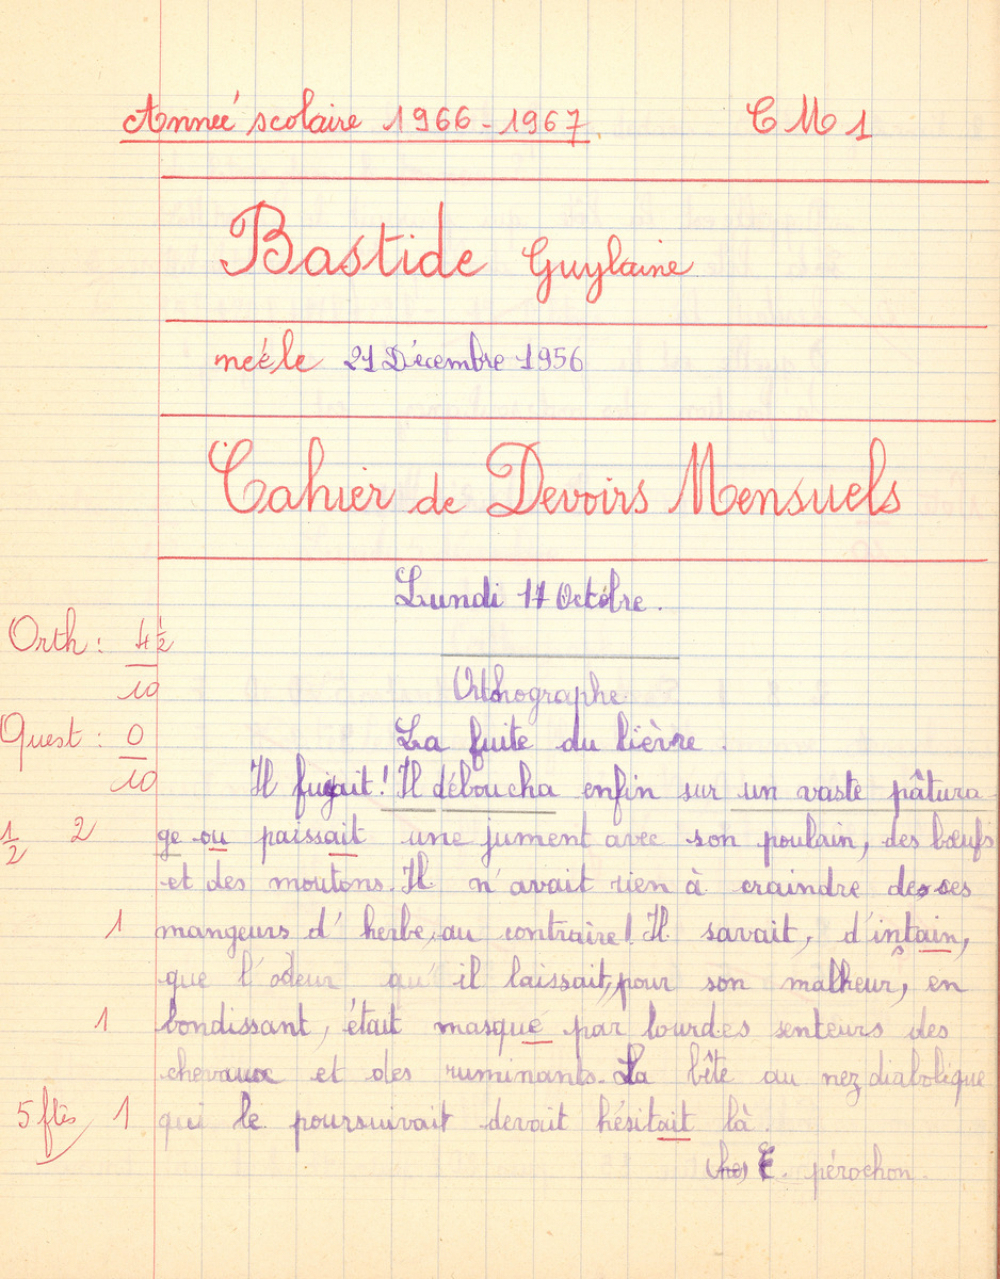 Année scolaire 1966-1967. CM1
Bastide Guylaine
née le 21 Décembre 1956
Cahier de Devoirs Mensuels
Lundi 17 Octobre.
Orth : 4 1/2
10
Orthographe
Quest : 0
10
La fuite du lièvre.
Il fuyait! Il déboucha enfin sur un vaste pâtura
1/2 2 ge ou paissait une jument avec son poulain, des bœufs
et des moutons. Il n'avait rien à craindre de ses
1 mangeurs d'herbe, au contraire! Il savait, d'instain,
que l'odeur qu'il laissait, pour son malheur, en
1 bondissant, était masqué par lourdes senteurs des
chevaux et des ruminants. La bête au nez diabolique
5 ftes 1 qui le poursuivait devait hésitait là.
E. pérochon.